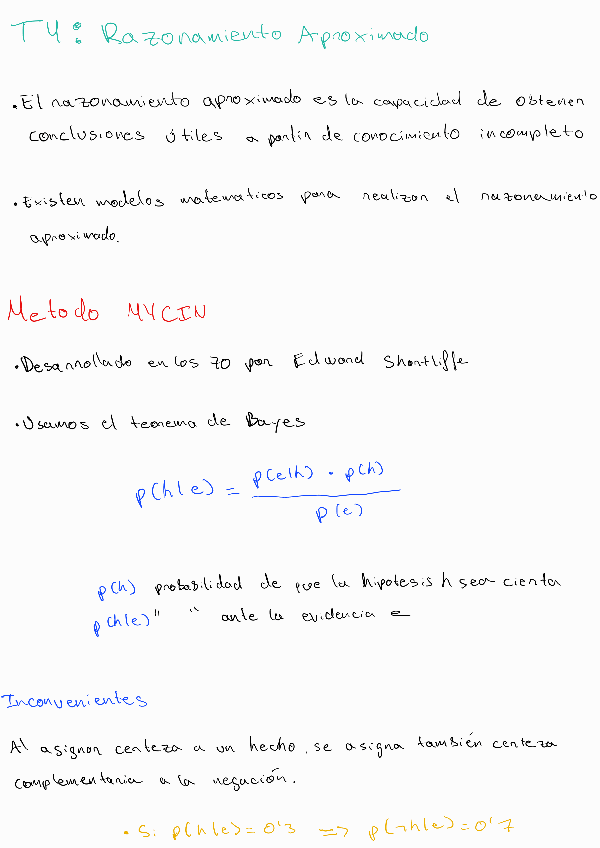 T4: Razonamiento Aproximado
• El razonamiento aproximado es la capacidad de obtener
conclusiones útiles a partir de conocimiento incompleto
• Existen modelos matematicos para realizar el razonamiento
aproximado.
Metodo MYCIN
• Desarrollado en los 70 por Edward Shortliffe
• Usamos el teorema de Bayes
p(h|e) = p(e|h) · p(h) / p(e)
p(h) probabilidad de que la hipotesis h sea cierta
p(h|e) " " ante la evidencia e
Inconvenientes
Al asignar certeza a un hecho, se asigna también certeza
complementaria a la negación.
• Si p(h|e) = 0'3 => p(¬h|e) = 0'7